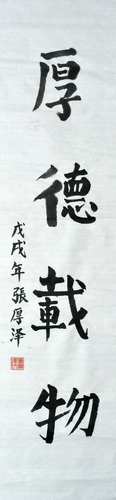 厚德載物
戊戌年張厚泽